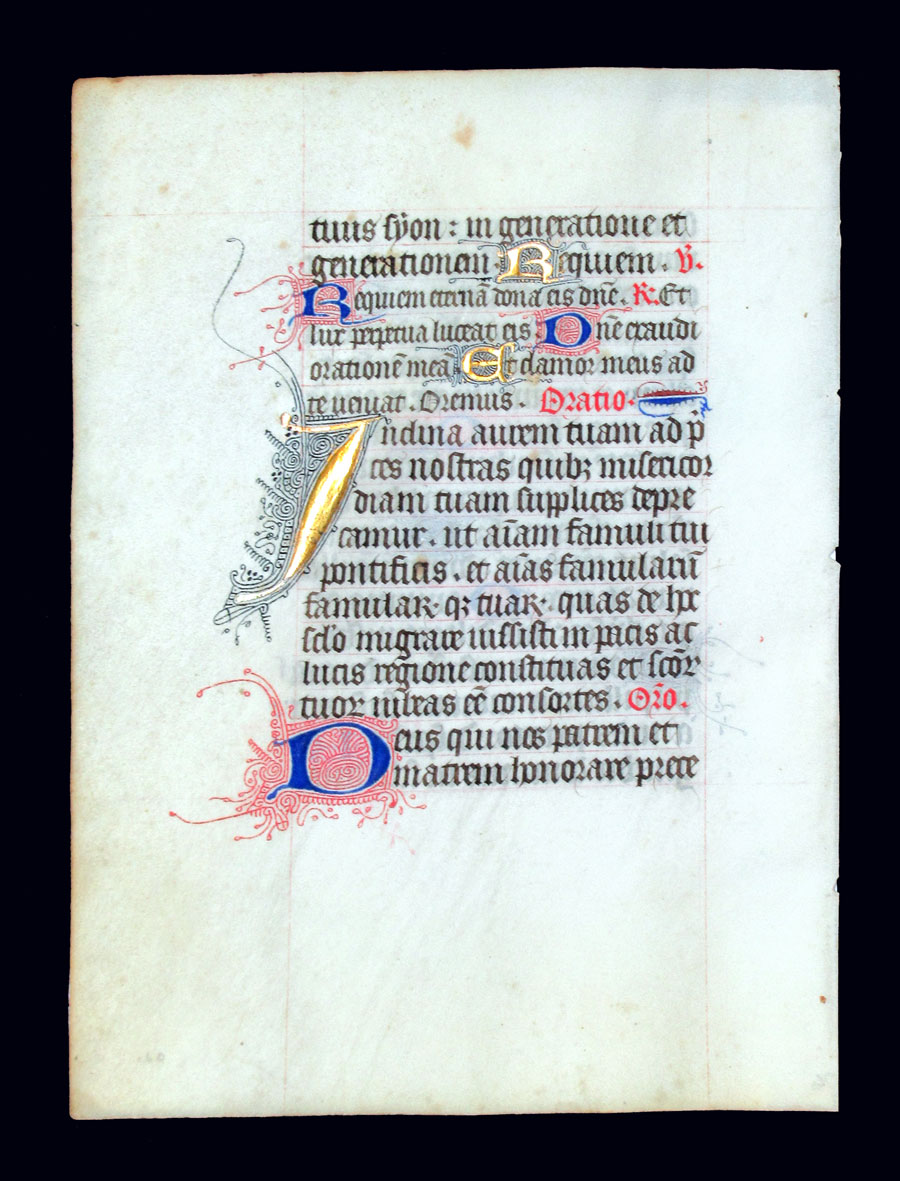 tuus sẏon : in generatione et
generationem . Requiem . V̓.
Requiem eternā dona eis dn̄e . R̓. Et
lux perpetua luceat eis Dn̄e exaudi
orationē meā Et clamor meus ad
te veniat . Oremus . Oratio .
Inclina aurem tuam ad p̄
ces nostras quibꝫ misericor
diam tuam supplices depre
camur . ut aīam famuli tui
pontificis . et aīas famularū
famulaꝝ . qꝫ tuaꝝ . quas de hoc
sclo migrare iussisti in pacis ac
lucis regione constituas et scōꝝ
tuoꝝ iubeas eē consortes . Or̄o .
Deus qui nos patrem et
matrem honorare prece